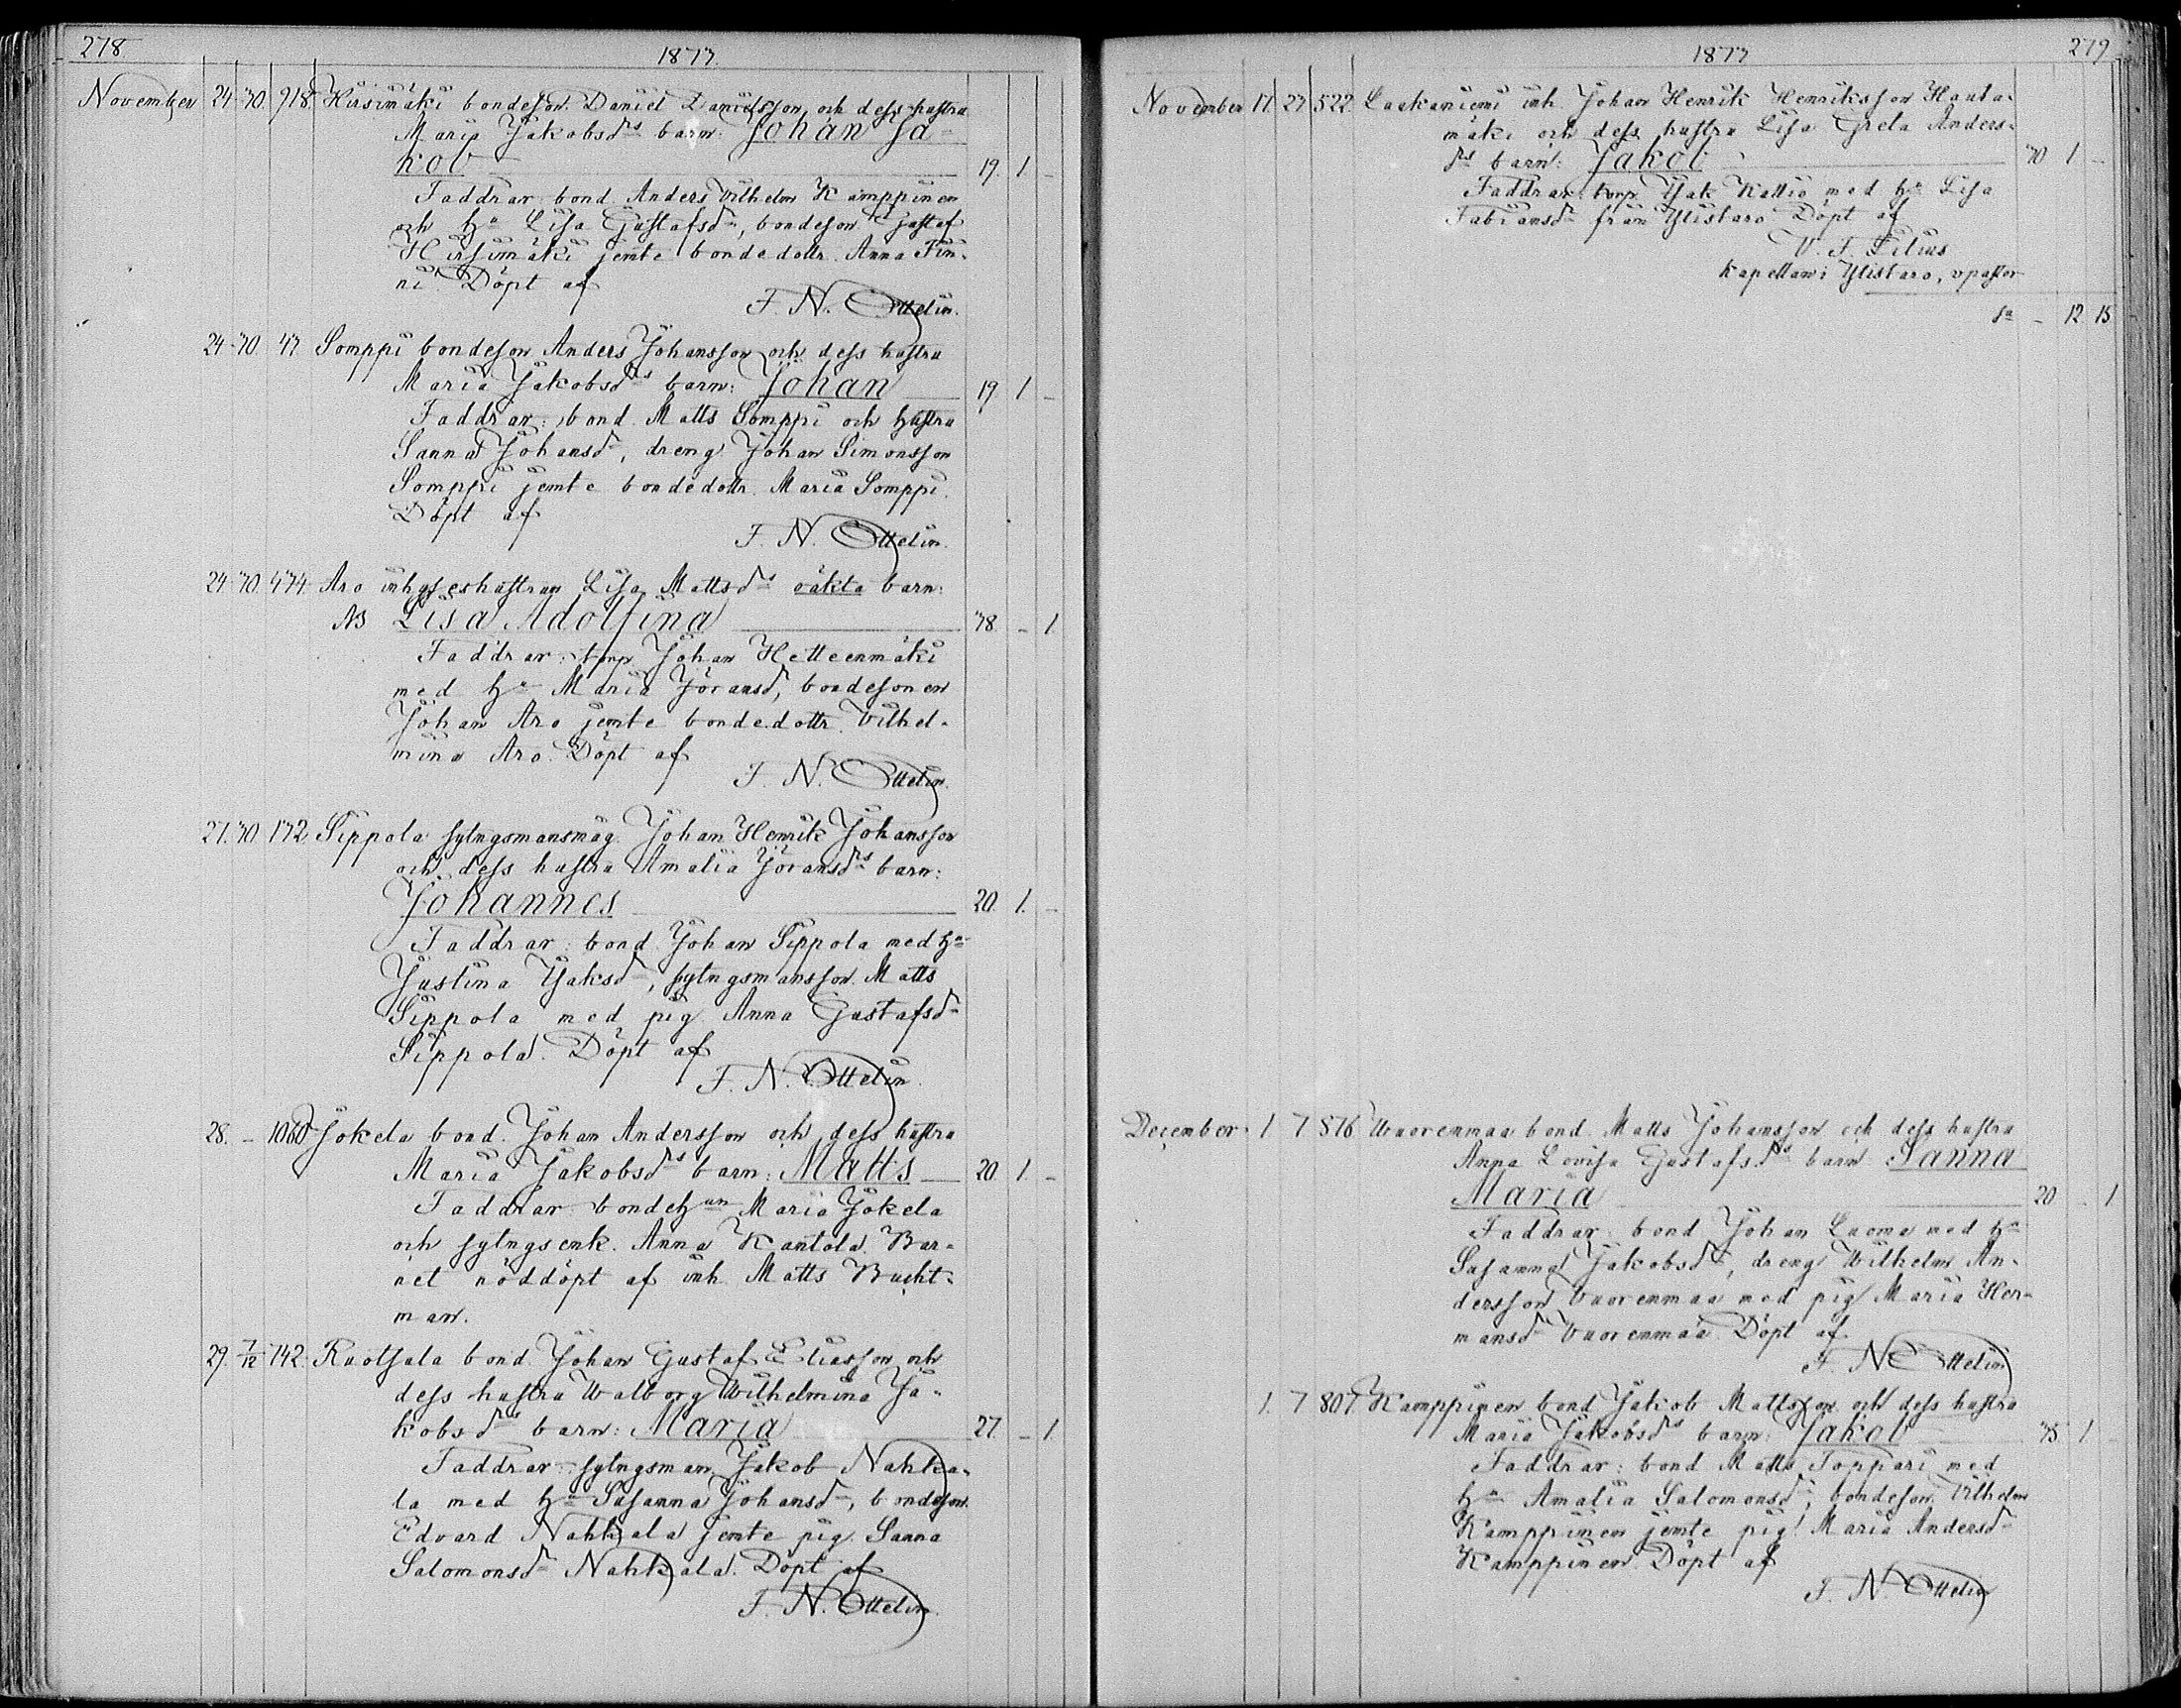 278
1877.
November 24. 30. 918. Hirsimäki bondeson Daniel Danielsson och dess hustru
Maria Jakobsdrs barn: Johan Ja-
kob 19. 1. -
Faddrar bond. Anders Vilhelm Kamppinen
och hu Lisa Gustafsdr, bondeson Gustaf
Hirsimäki jemte bondedottr. Anna Fin-
ni. Döpt af
F. N. Ottelin.
24. 30. 47. Somppi bondeson Anders Johansson och dess hustru
Maria Jakobsdrs barn: Johan 19. 1 -
Faddrar: bond. Matts Somppi och hustru
Sanna Johansdr, dreng Johan Simonsson
Somppi jemte bondedottr. Maria Somppi.
Döpt af
F. N. Ottelin.
24. 30. 474. Aro inhyseshustrun Lisa Mattsdrs oäkta barn:
NB Lisa Adolfina 38. - 1.
Faddrar: torp. Johan Hetteenmäki
med hu Maria Jöransdr, bondesonen
Johan Aro jemte bondedottr. Vilhel-
mina Aro. Döpt af
F. N. Ottelin.
27. 30. 172. Sippola sytngsmansmåg Johan Henrik Johansson
och dess hustru Amalia Jöransdrs barn:
Johannes 20. 1. -
Faddrar: bond Johan Sippola med hu
Justina Isaksdr, sytngsmansson Matts
Sippola med pig. Anna Gustafsdr
Sippola. Döpt af
F. N. Ottelin.
28. - 1060 Jokela bond. Johan Andersson och dess hustru
Maria Jakobsdrs barn: Matts 20. 1. -
Faddrar bondehun Maria Jokela
och sytngsenk. Anna Kantola. Bar-
net nöddöpt af inh. Matts Bucht-
man.
29. 7/12 142. Ruotsala bond. Johan Gustaf Eliasson och
dess hustru Walborg Wilhelmina Ja-
kobsdrs barn: Maria 27. - 1.
Faddrar: sytngsman Jakob Nahka-
la med hu Susanna Johansdr, bondeson
Edvard Nahkala jemte pig. Sanna
Salomonsdr Nahkala. Döpt af
F. N. Ottelin.
1877
279
November 17. 27. 522. Laakaniemi inh. Johan Henrik Henriksson Hauta-
mäki och dess hustru Lisa Greta Anders-
drs barn: Jakob 30 1 -
Faddrar: torp. Isak Kattio med hu Lisa
Fabiansdr från Ylistaro Döpt af
V. F. Lilius
Kapellan i Ylistaro, vpastor
Sa - 12 15
December 1 7 876. Wuorenmaa bond. Matts Johansson och dess hustru
Anna Lovisa Gustafsdrs barn Sanna
Maria 20 - 1
Faddrar: bond Johan Luoma med hu
Susanna Jakobsdr, dreng Wilhelm An-
dersson Vuorenmaa med pig. Maria Her-
mansdr Vuorenmaa. Döpt af
F. N. Ottelin
1. 7 807. Kamppinen bond Jakob Mattsson och dess hustru
Maria Jakobsdrs barn: Jakob 35 1
Faddrar: bond Matts Toppari med
hu Amalia Salomonsdr, bondeson Vilhelm
Kamppinen jemte pig. Maria Andersdr
Kamppinen. Döpt af
F. N. Ottelin